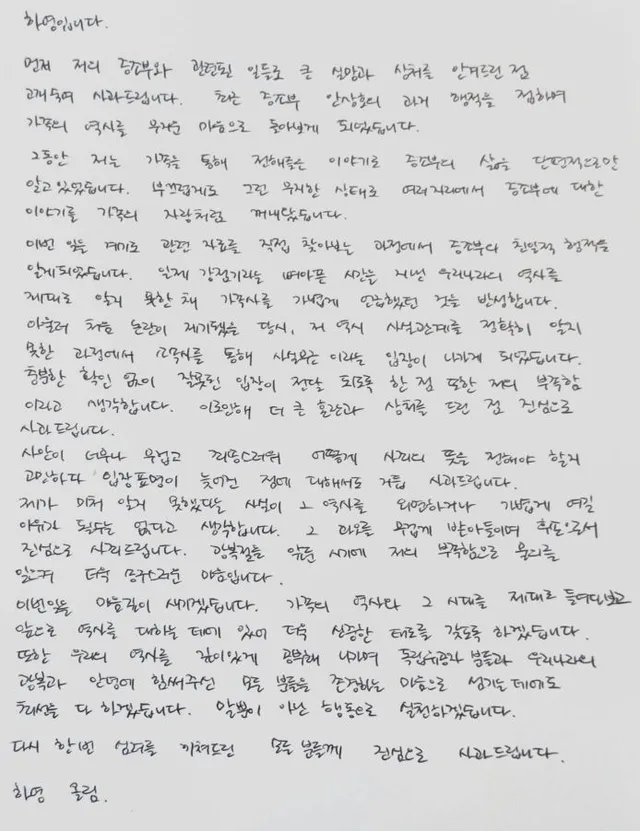 하영입니다.
먼저 저의 증조부와 관련된 일들로 큰 실망과 상처를 안겨드린 점
고개숙여 사과드립니다. 최근 증조부 안상호의 과거 행적을 접하며
가족의 역사를 무거운 마음으로 돌아보게 되었습니다.
그동안 저는 가족을 통해 전해들은 이야기로 증조부의 삶을 단편적으로만
알고있었습니다. 부끄럽게도 그런 무지한 상태로 여러자리에서 증조부에 대한
이야기를 가족의 자랑처럼 꺼내었습니다.
이번 일을 계기로 관련 자료를 직접 찾아보는 과정에서 증조부의 친일적 행적을
알게되었습니다. 일제 강점기라는 뼈아픈 시간을 지난 우리나라의 역사를
제대로 알지 못한 채 가족사를 가볍게 언급했던 것을 반성합니다.
아울러 처음 논란이 제기됐을 당시, 저 역시 사실관계를 정확히 알지
못한 과정에서 소속사를 통해 사실무근 이라는 입장이 나가게 되었습니다.
충분한 확인 없이 잘못된 입장이 전달 되도록 한 점 또한 저의 부족함
이라고 생각합니다. 이로인해 더 큰 혼란과 상처를 드린 점 진심으로
사과드립니다.
사안이 너무나 무겁고 죄송스러워 어떻게 사죄의 뜻을 전해야 할지
고민하다 입장표명이 늦어진 점에 대해서도 거듭 사과드립니다.
제가 미처 알지 못했다는 사실이 그 역사를 외면하거나 가볍게 여길
이유가 될수는 없다고 생각합니다. 그 과오를 무겁게 받아들이며 후손으로서
진심으로 사죄드립니다. 광복절을 앞둔 시기에 저의 부족함으로 물의를
일으켜 더욱 송구스러운 마음입니다.
이번일을 마음깊이 새기겠습니다. 가족의 역사와 그 시대를 제대로 들여다보고
앞으로 역사를 대하는 데에 있어 더욱 신중한 태도를 갖도록 하겠습니다.
또한 우리의 역사를 깊이있게 공부해 나가며 독립유공자 분들과 우리나라의
광복과 안녕에 힘써주신 모든 분들을 존경하는 마음으로 섬기는 데에도
최선을 다 하겠습니다. 말뿐이 아닌 행동으로 실천하겠습니다.
다시 한번 심려를 끼쳐드린 모든 분들께 진심으로 사과드립니다.
하영 올림.